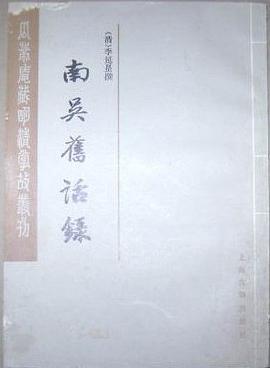 上海古籍出版社
(清)李延昰撰
南吳舊話錄
瓜蒂庵藏明清掌故叢刊